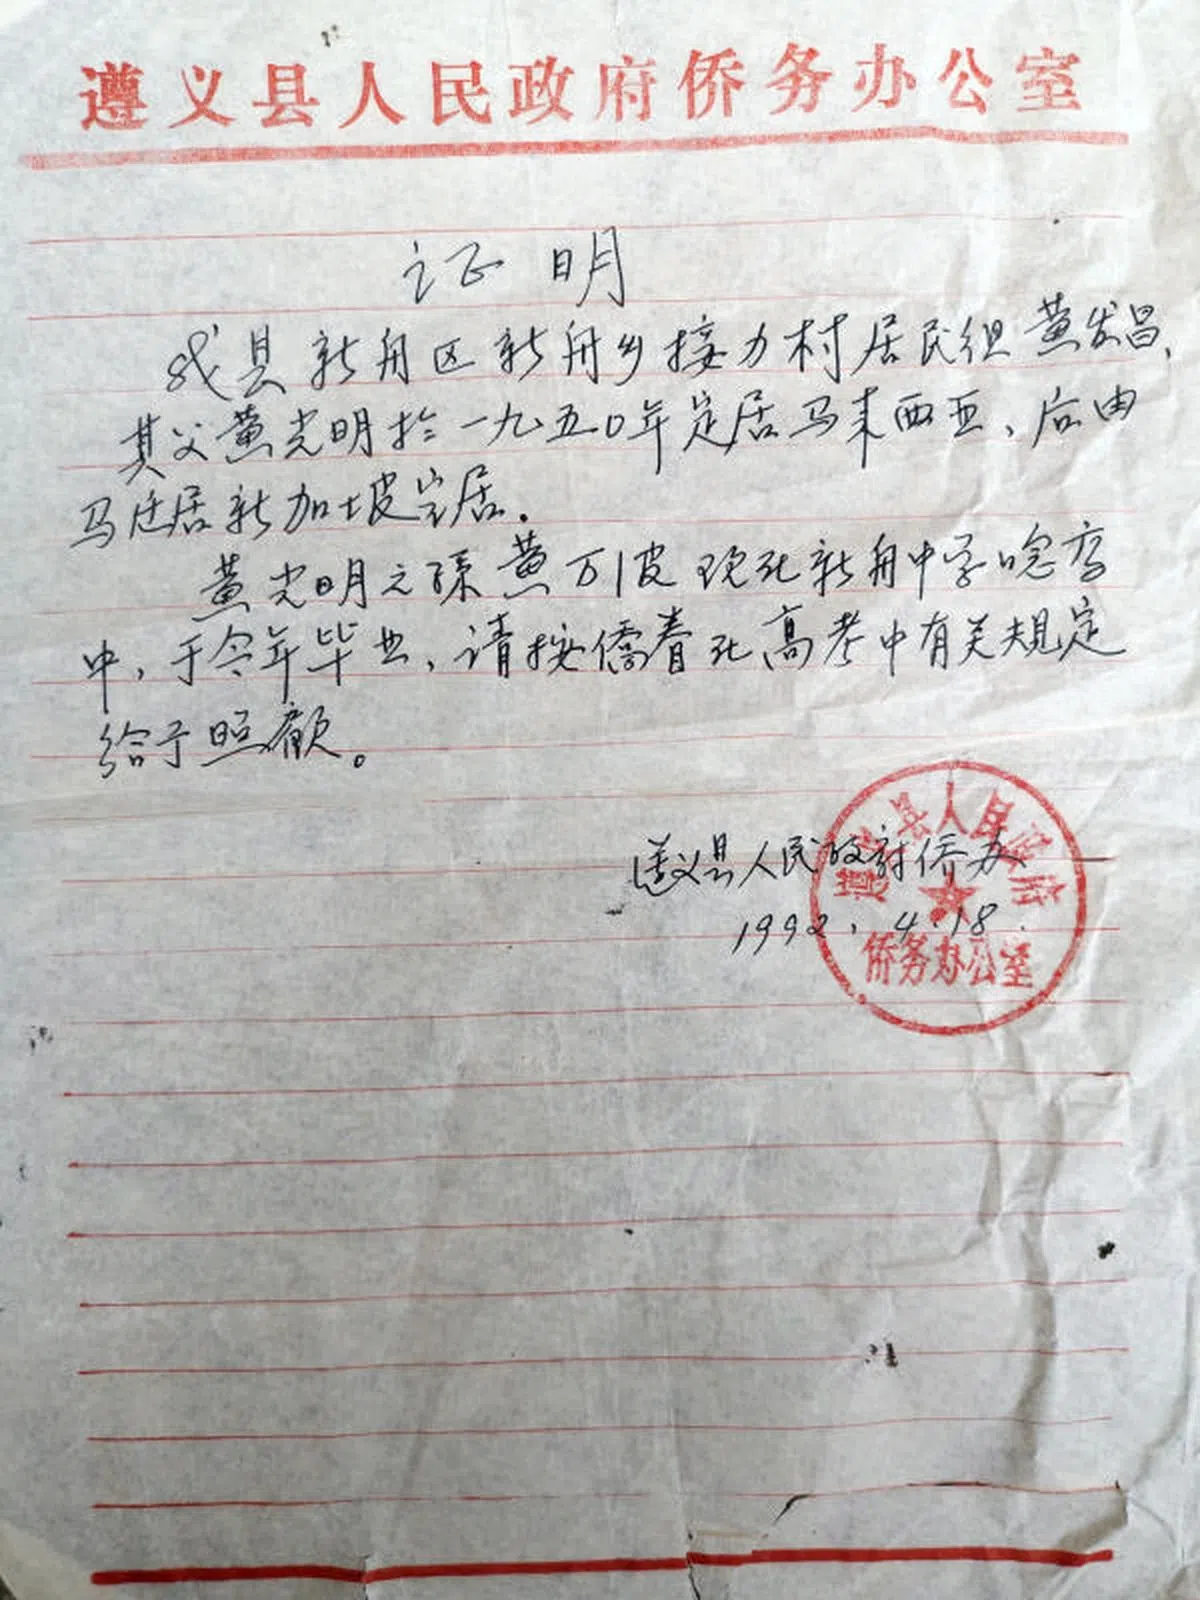 遵义县人民政府侨务办公室
证明
我县新舟区新舟乡接力村居民组黄发昌，
其父黄光明于一九五0年定居马来西亚、后由
马迁居新加坡定居.
黄光明之孙黄万波现在新舟中学唸书
中，于今年毕业，请按侨眷在高考中有关规定
给予照顾。
遵义县人民政府侨办
1992.4.18.
遵义县人民政府
侨务办公室